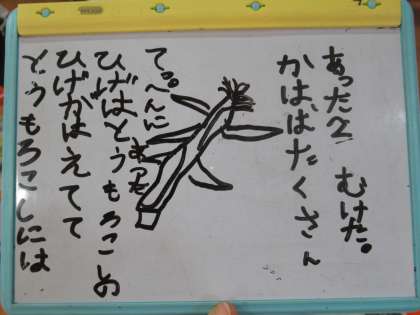 とうもろこしには
ひげがはえてて
ひげはとうもろこしの
て。へんに
かは、はたくさん
あった むけた。